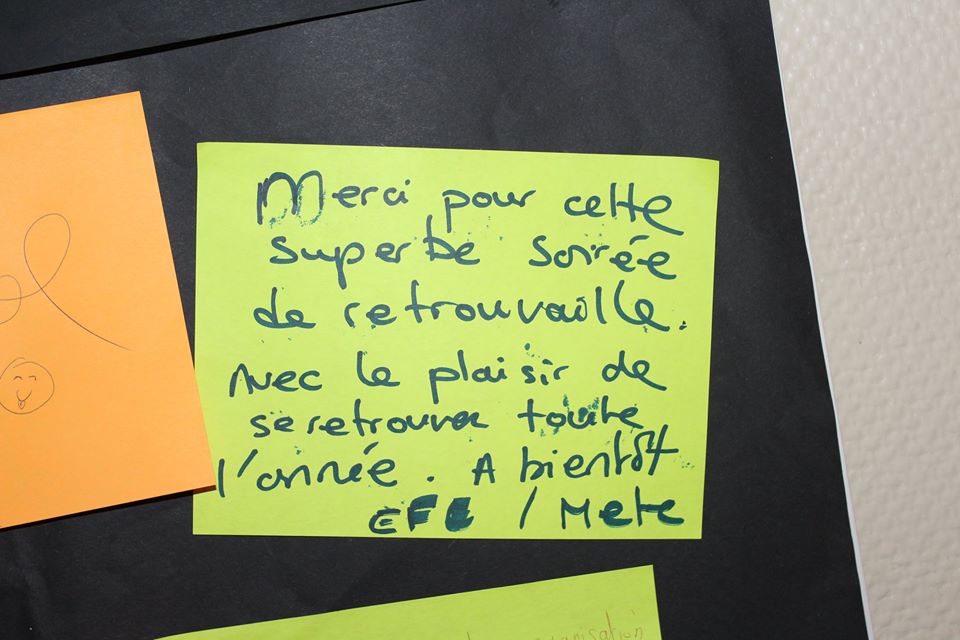 Merci pour cette
superbe soirée
de retrouvaille.
Avec le plaisir de
se retrouver toute
l'année. A bientôt
EFE / Mete
organisation